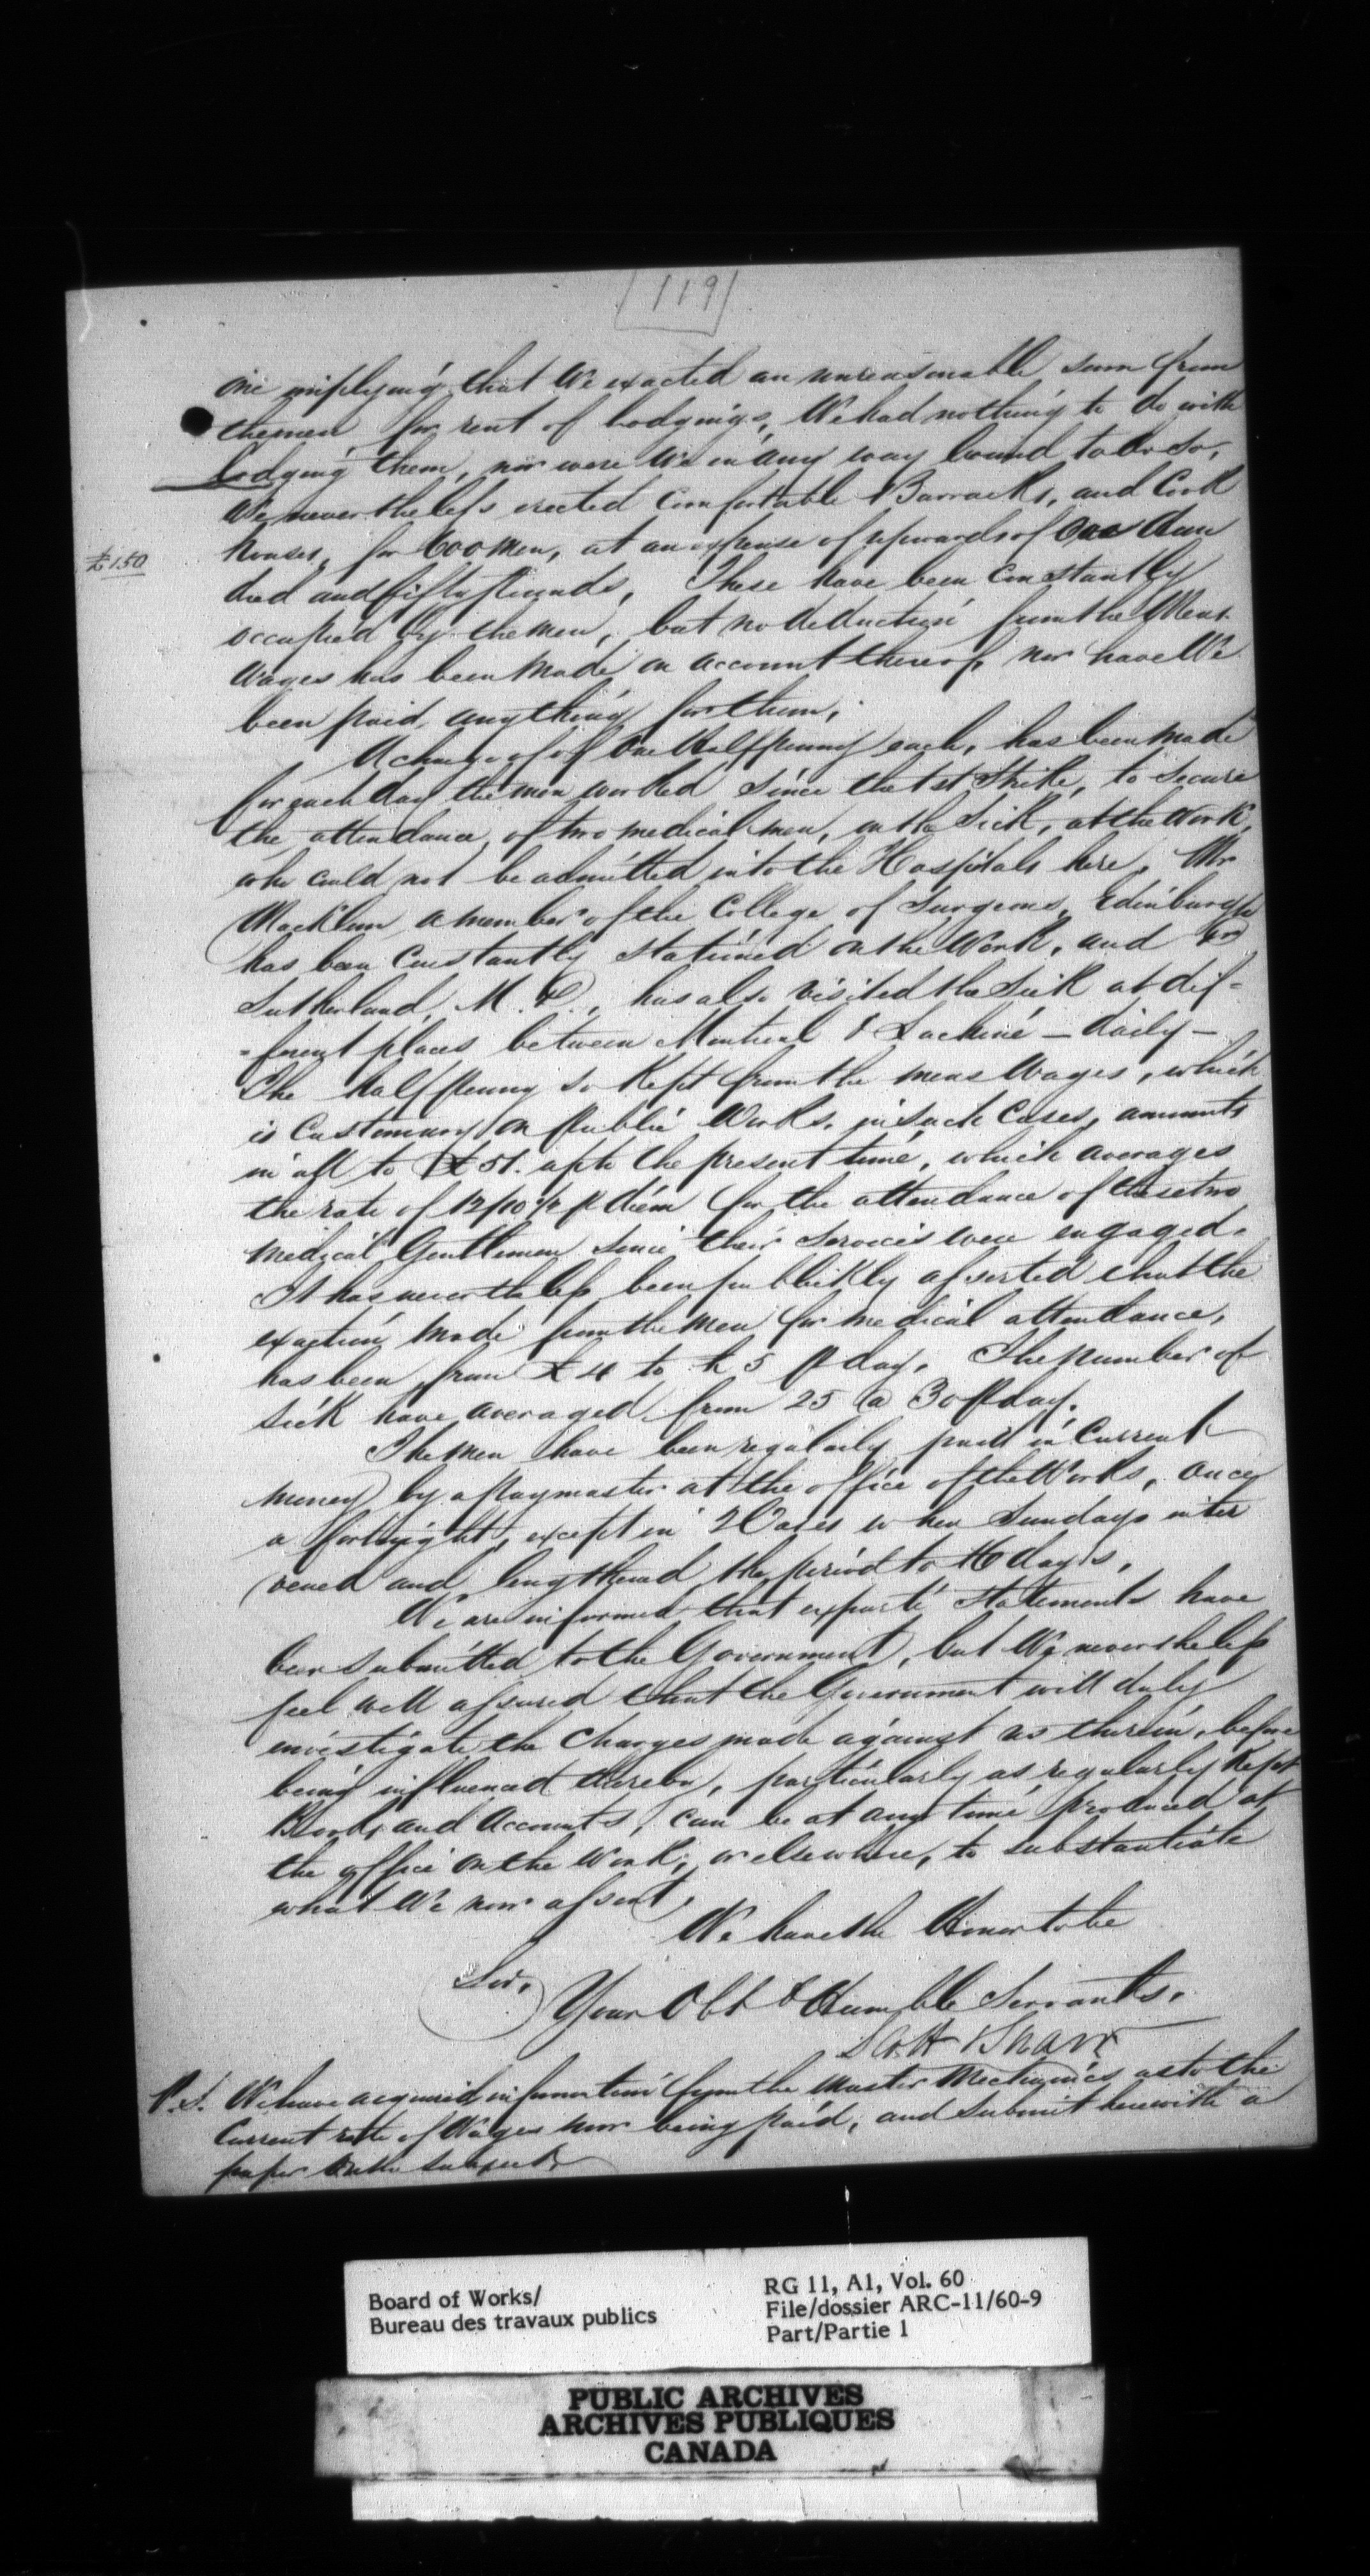 [119]
one implying that We exacted an unreasonable sum from
the men for rent of Lodgings, We had nothing to do with
Lodging them, nor were We in any way bound to do so,
We nevertheless erected Comfortable Barracks, and Cook
£150
houses, for 600 men, at an expense of upwards of One Hun
dred and fifty Pounds, These have been Constantly
occupied by the men, but no deduction from the Mens
Wages has been made on account thereof, nor have We
been paid anything for them.
A charge of One Half penny each, has been made
for each day the men worked since the 1st Strike, to secure
the attendance of two medical men, on the Sick, at the Work,
who could not be admitted into the Hospitals here. Mr
a member of the College of Surgeons, Edinburgh
has been Constantly stationed on the Work, and Dr
Sutherland, M.D., has also visited the Sick at dif-
-ferent places between Montreal & Lachine – daily –
The half penny so kept from the mens Wages, which
is Customary on public Works, in such Cases, amounts
in all to £51. up to the present time, which averages
the rate of 12/10½ p diem for the attendance of these two
medical Gentlemen since their services were engaged.
It has nevertheless been publickly asserted that the
exaction made from the men for medical attendance,
has been from £4 to £5 p day. The number of
sick have averaged from 25 @ 30 p day.
The men have been regularly paid in Current
money by a Paymaster at the office of the Works, once
a fortnight, except in 2 Cases when Sundays inter
vened and lengthened the period to 16 days.
We are informed that exparte statements have
been submitted to the Government, but We nevertheless
feel well assured that the Government will duly
investigate the Charges made against us therein, before
being influenced thereby, particularly as regularly kept
Books and Accounts, can be at any time produced at
the office on the Work, or elsewhere, to substantiate
what We now assert.
We have the Honor to be
Sir,
Your Obt & Humble Servants,
Scott & Shaw
P.S. We have acquired information from the Master Mechanics, as to the
Current rate of Wages now being paid, and submit herewith a
paper on the subject
Board of Works/
Bureau des travaux publics
RG 11, A1, Vol. 60
File/dossier ARC-11/60-9
Part/Partie 1
PUBLIC ARCHIVES
ARCHIVES PUBLIQUES
CANADA